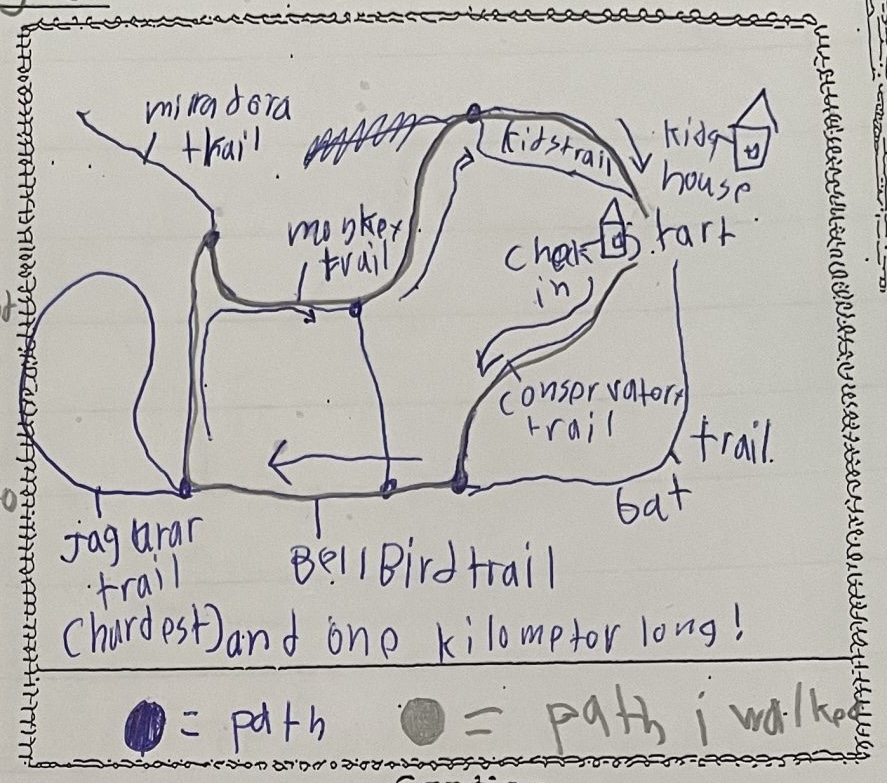 miradora
trail
kids trail
kids
house
monkey
trail
check
in
start
conservatory
trail
trail
bat
jaguarar
trail
BellBird trail
(hardest) and one kilometor long!
= path
= path i walked